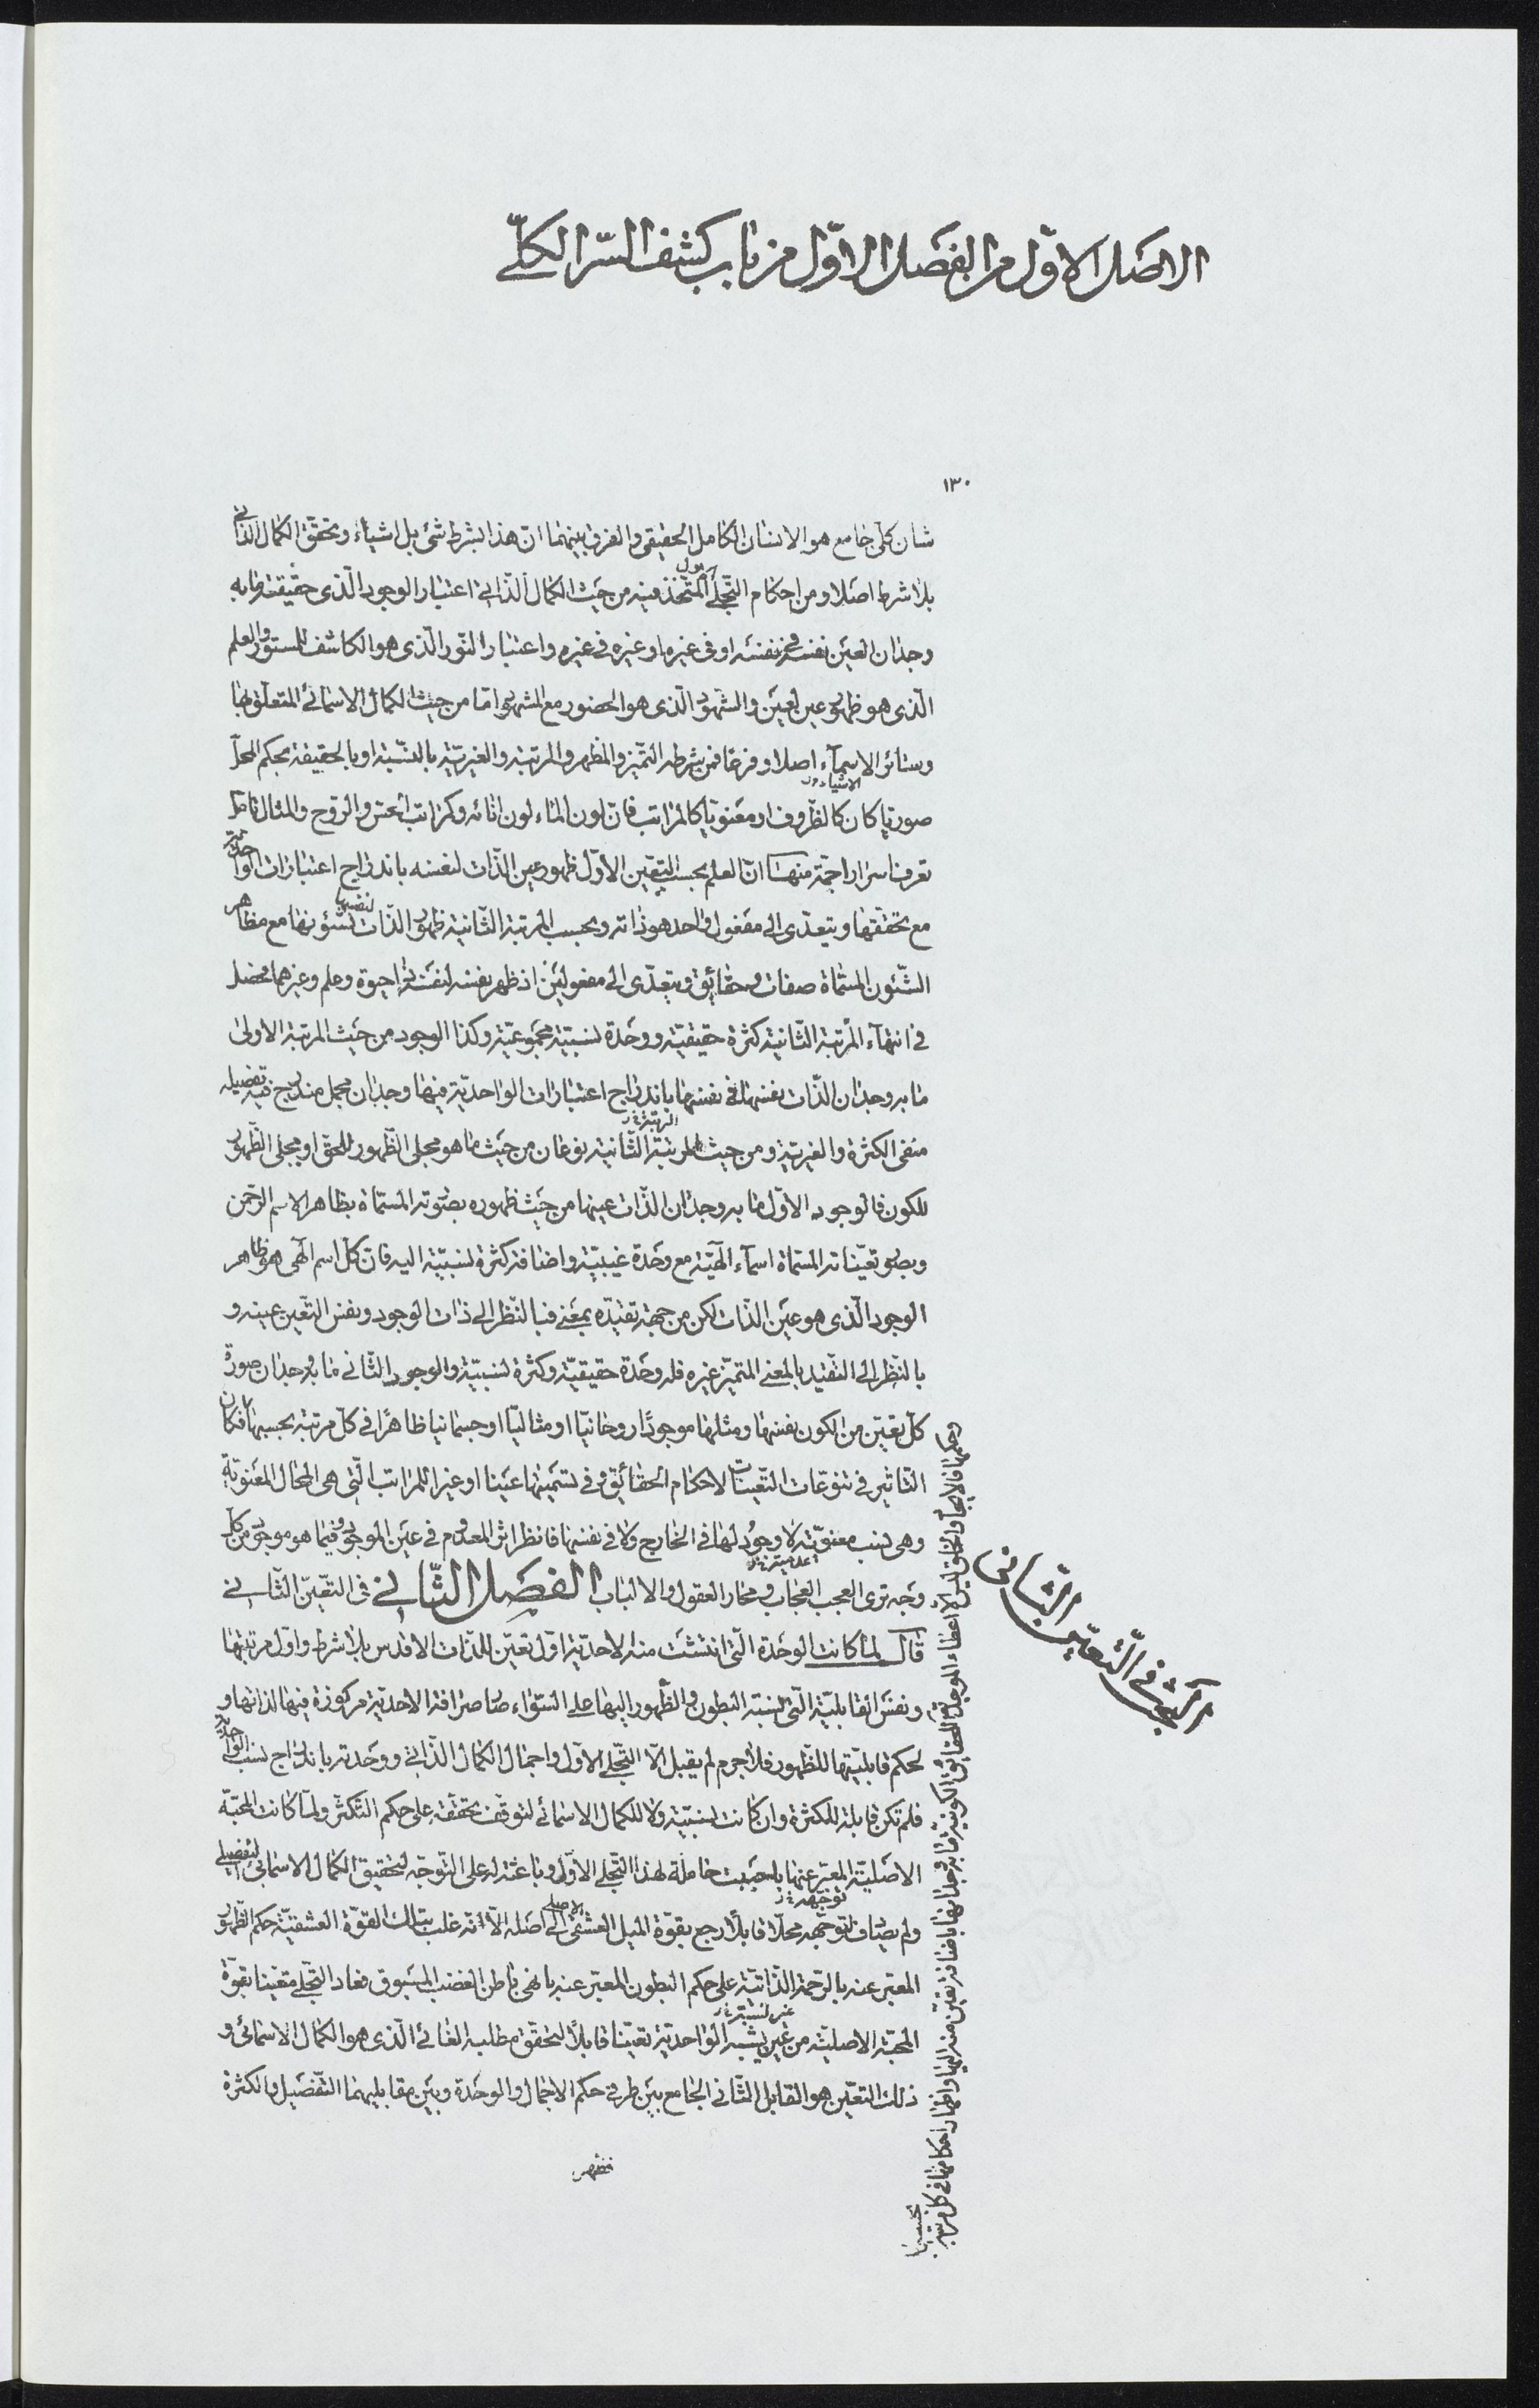 الاصل الاوّل من الفصل الاوّل من باب كشف السّر الكلّي
١٣٠
شان كلّى جامع هو الانسان الكامل الحقيقى والفرق بينهما انّ هذا بشرط شئ بل اشياء وتحقّق الكمال الذاتى
بلا شرط اصلا ومن احكام التجلّى الاول المتّخذ فيه من حيث الكمال الذّاتى اعتبار الوجود الّذى حقيقته ما به
وجدان العين نفسه فى نفسه او فى غيره او غيره فى غيره واعتبار النّور الّذى هو الكاشف للمستور والعلم
الّذى هو ظهور عين لعين والشّهود الّذى هو الحضور مع المشهود امّا من حيث الكمال الاسمائى المتعلّق بها
وسائر الاسماء اصلا وفرعا فمن شرطه التميّز والمظهر والمرتبة والغيريّة بالنسبة او بالحقيقة بحكم المحلّ
صوريا كان كالظروف او معنويا كالمراتب فان لون الماء لون انائه وكمراتب الحسّ والروح والمثال فاعلم
تعرف اسرارا جمّة منها انّ العلم بحسب التعيّن الاوّل ظهور عين الذّات لنفسه باندراج اعتبارات الواحديّة
مع تحقّقها ويتعدّى الى مفعول واحد هو ذاته وبحسب المرتبة الثّانية ظهور الذّات لنفسها بشئونها مع مظاهر
الشّئون المسمّاة صفات وحقائق ويتعدّى الى مفعولين اذ ظهر نفسه لنفسه ذا حيوة وعلم وغيرهما فحصل
فى انتهاء المرتبة الثّانية كثرة حقيقيّة ووحدة نسبيّة مجموعيّة وكذا الوجود من حيث المرتبة الاولى
ما به وجدان الذّات نفسها فى نفسها باندراج اعتبارات الواحديّة فيها وجدان مجمل مندرج فيه تفصيله
منفى الكثرة والغيريّة ومن حيث المرتبة الثّانية نوعان من حيث ما هو مجلى الظّهور للحقّ او مجلى الظّهور
للكون فالوجود الاوّل ما به وجدان الذّات عينها من حيث ظهوره بصورته المسمّاة بظاهر الاسم الرحمن
وبصور تعيّناته المسمّاة اسماء الهيّة مع وحدة غيبيّة واضافة كثرة نسبيّة اليه فان كلّ اسم الهى هو ظاهر
الوجود الّذى هو عين الذّات لكن من جهة تقيّده بمعنى فبالنّظر الى ذات الوجود ونفس التّعين عينه و
بالنّظر الى التقيّد بالمعنى المتميّز غيره فله وحدة حقيقيّة وكثرة نسبيّة والوجود الثّانى ما به وجدان صورة
كلّ تعيّن من الكون نفسها ومثلها موجودًا روحانيّا او مثاليّا او جسمانيا ظاهرًا فى كلّ مرتبة بحسبها فكان
التّاثير فى تنوّعات التّعينات لاحكام الحقائق وفى تسميتها عينا او غيرا للمراتب الّتى هى المحال المعنويّة
وهى نسب معنويّة لا وجود لها فى الخارج ولا فى نفسها فانظر اثر المعدوم فى عين الموجود وفيما هو موجود من كلّ
وجه ترى العجب العجاب ومحار العقول والالباب الفصل الثّانى فى التعيّن الثّانى
قال لما كانت الوحدة الّتى انتشئت منه الاحديّة اوّل تعيّن للذّات الاقدس بلا شرط واوّل مرتبتها
ونفس القابليّة الّتى نسبة البطون والظّهور اليها على السّواء صرافة الاحديّة مركوزة فيها لذاتها و
لحكم قابليّتها للظّهور فلا جرم لم يقبل الّا التّجلى الاوّل واجمال الكمال الذّاتى ووحدته باندراج نسب الواحديّة
فلم تكن قابلة للكثرة وان كانت نسبيّة ولا للكمال الاسمائى لتوقّف تحقّقه على حكم التّكثر ولمّا كانت المحبّة
الاصليّة المعبّر عنها باحببت حاملة لهذا التّجلى الاوّل وباعثة له على التّوجّه لتحقيق الكمال الاسمائى التفصيلى
ولم يصادف لتوجّهه محلّا قابلًا رجع بقوّة الميل العشقى الاصلى الى اصله الّا انّه غلب بتلك القوّة العشقيّة حكم الظّهور
المعبّر عنه بالرّحمة الذّاتيّة على حكم البطون المعبّر عنه بانهى باطن الغضب المسبوق فعاد التّجلى متعيّنا بقوّة
المحبّة الاصليّة من غير نسبة الواحديّة تعيّنا قابلًا لتحقّق مطلبه الغائى الّذى هو الكمال الاسمائى و
ذلك التعيّن هو القابل الثّانى الجامع بين طرفى حكم الاجمال والوحدة وبين مقابليهما التّفصيل والكثرة
فظهر
البحث فى التّعيّن الثّانى